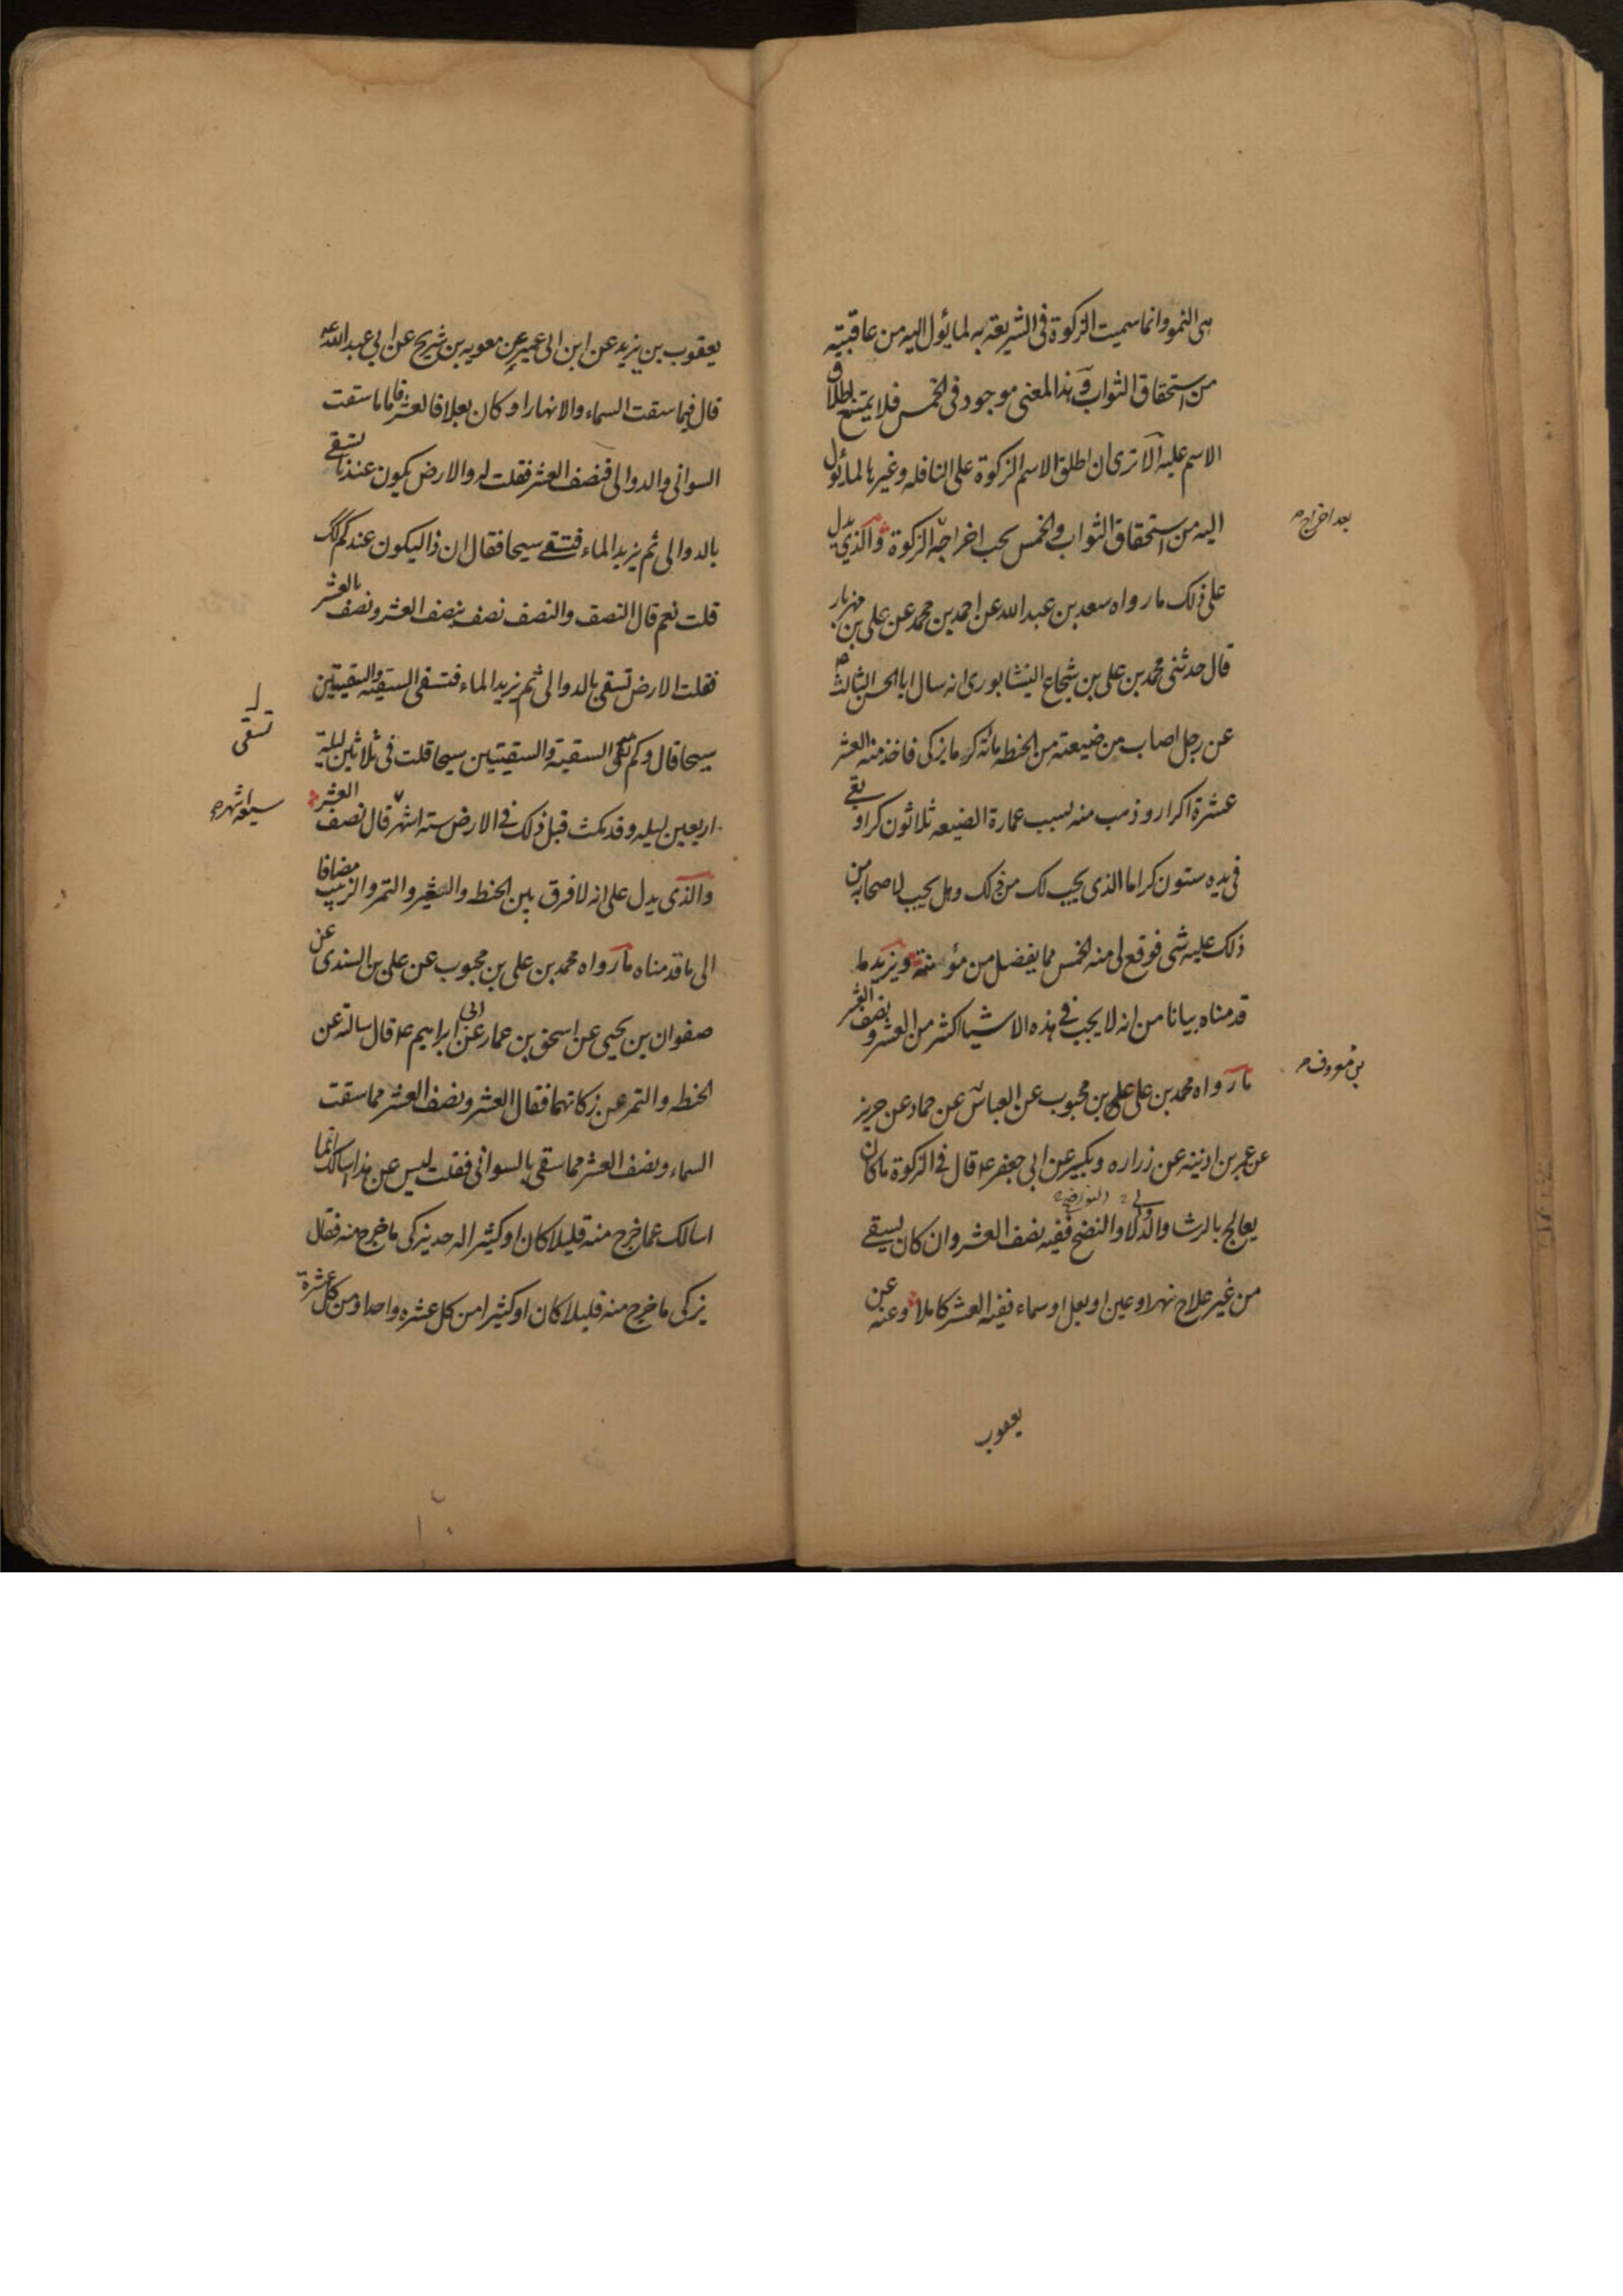 هى النمو وانما سميت الزكوة فى الشريعة به لما يؤل اليه من عاقبته
من استحقاق الثواب وهذا المعنى موجود فى الخمس فلا يمتنع اطلاق
الاسم عليه الا ترى ان اطلق الاسم الزكوة على النافله وغيرها لما يؤل
اليه من استحقاق الثواب والخمس يجب اخراجه الزكوة والذي يدل
بعد اخراج
على ذلك ما رواه سعد بن عبد الله عن احمد بن محمد عن على بن مهزيار
قال حدثنى محمد بن على بن شجاع النيشابورى انه سال ابا الحسن الثالث
عن رجل اصاب من ضيعته من الحنطه مائة كر ما يزكى فاخذ منه العشر
عشرة اكرار وذهب منه لسبب عمارة الضيعه ثلاثون كرا وبقى
فى يده ستون كرا ما الذى يجب لك من ذلك وهل يجب لاصحابه من
ذلك عليه شى فوقع لى منه الخمس مما يفضل من مؤنته ويزيد ما
قدمناه بيانا من انه لا يجب فى هذه الاشيا اكثر من العشر ونصف العشر
ما رواه محمد بن على على بن محبوب عن العباس عن حماد عن حريز
بن معروف
عن عمر بن اذينه عن زراره وبكير عن ابى جعفر ع قال فى الزكوة ما كان
يعالج بالرشا والدلا والنضح ففيه نصف العشر وان كان يسقى
من غير علاج نهر او عين او بعل او سماء ففيه العشر كاملا وعنه عن
يعقوب
يعقوب بن يزيد عن ابن ابى عمير عن معويه بن شريح عن ابي عبد الله ع
قال فيما سقت السماء والانهار او كان بعلا فالعشر فاما ما سقت
السوانى والدوالى فنصف العشر فقلت له والارض يكون عندنا تسقى
بالدوالى ثم يزيد الماء فتسقى سيحا فقال ان ذا ليكون عندكم كذلك
قلت نعم قال النصف والنصف نصف بنصف العشر ونصف بالعشر
فقلت الارض تسقى بالدوالى ثم يزيد الماء فتسقى السقيه والسقيتين
سيحا قال وكم تسقى السقية والسقيتين سيحا قلت فى ثلاثين ليلة
تسقى
اربعين ليله وقد مكث قبل ذلك فى الارض سته اشهر قال نصف العشر
سبعه اشهر
والذى يدل على انه لا فرق بين الحنطه والشعير والتمر والزبيب مضافا
الى ما قدمناه ما رواه محمد بن على بن محبوب عن على بن السندى عن
صفوان بن يحيى عن اسحق بن عمار عن ابى ابراهيم ع قال سالته عن
الحنطه والتمر عن زكاتهما فقال العشر ونصف العشر مما سقت
السماء ونصف العشر مما سقى بالسوانى فقلت ليس عن هذا اسالك انما
اسالك عما خرج منه قليلا كان او كثيرا اله حد يزكى ما خرج منه فقال
يزكى ما خرج منه قليلا كان او كثيرا من كل عشره واحدا ومن كل عشرة